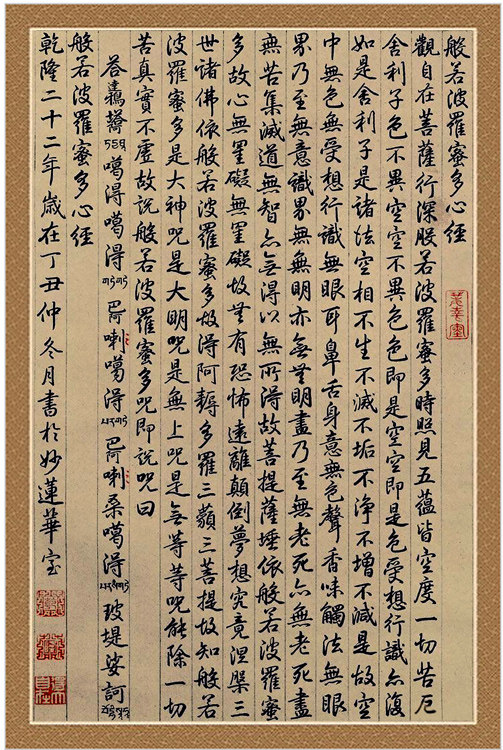 般若波羅蜜多心經
觀自在菩薩行深般若波羅蜜多時照見五蘊皆空度一切苦厄
舍利子色不異空空不異色色即是空空即是色受想行識亦復
如是舍利子是諸法空相不生不滅不垢不淨不增不減是故空
中無色無受想行識無眼耳鼻舌身意無色聲香味觸法無眼
界乃至無意識界無無明亦無無明盡乃至無老死亦無老死盡
無苦集滅道無智亦無得以無所得故菩提薩埵依般若波羅蜜
多故心無罣礙無罣礙故無有恐怖遠離顛倒夢想究竟涅槃三
世諸佛依般若波羅蜜多故得阿耨多羅三藐三菩提故知般若
波羅蜜多是大神咒是大明咒是無上咒是無等等咒能除一切
苦真實不虛故說般若波羅蜜多咒即說咒曰
噶得噶得巴阿喇噶得巴阿喇桑噶得玻堤娑訶
般若波羅蜜多心經
乾隆二十二年歲在丁丑仲冬月書於妙蓮華室